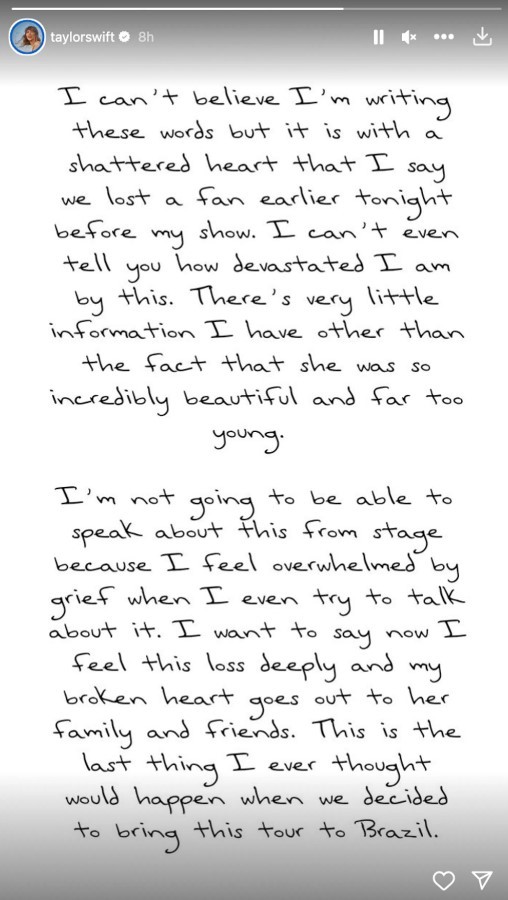 taylorswift 8h
I can't believe I'm writing
these words but it is with a
shattered heart that I say
we lost a fan earlier tonight
before my show. I can't even
tell you how devastated I am
by this. There's very little
information I have other than
the fact that she was so
incredibly beautiful and far too
young.
I'm not going to be able to
speak about this from stage
because I feel overwhelmed by
grief when I even try to talk
about it. I want to say now I
feel this loss deeply and my
broken heart goes out to her
family and friends. This is the
last thing I ever thought
would happen when we decided
to bring this tour to Brazil.